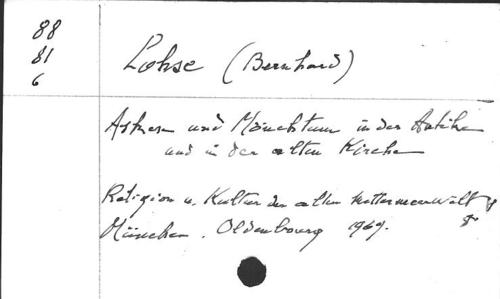 88
81
6
Lohse (Bernhard)
Askese und Mönchtum in der Antike
und in der alten Kirche
Religion u. Kultur der alten Mittelmeerwelt
München. Oldenbourg 1969.